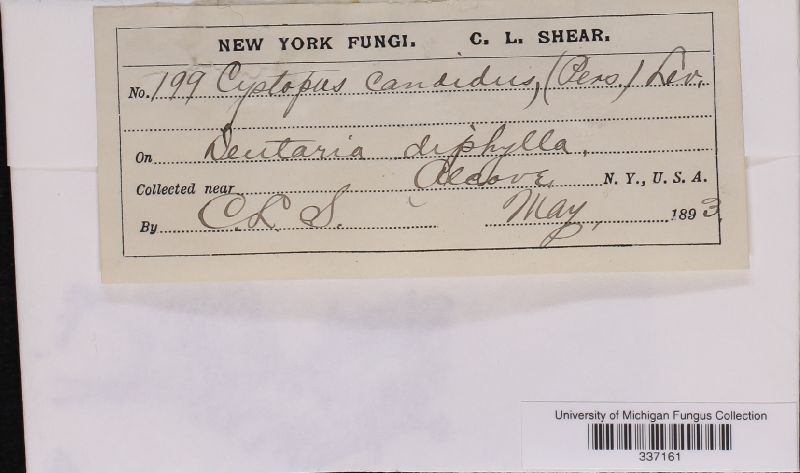 NEW YORK FUNGI. C. L. SHEAR.
No. 199 Cystopus candidus, (Pers.) Lev.
On Dentaria diphylla,
Collected near Alcove, N. Y., U. S. A.
By C. L. S. May, 1893.
University of Michigan Fungus Collection
337161